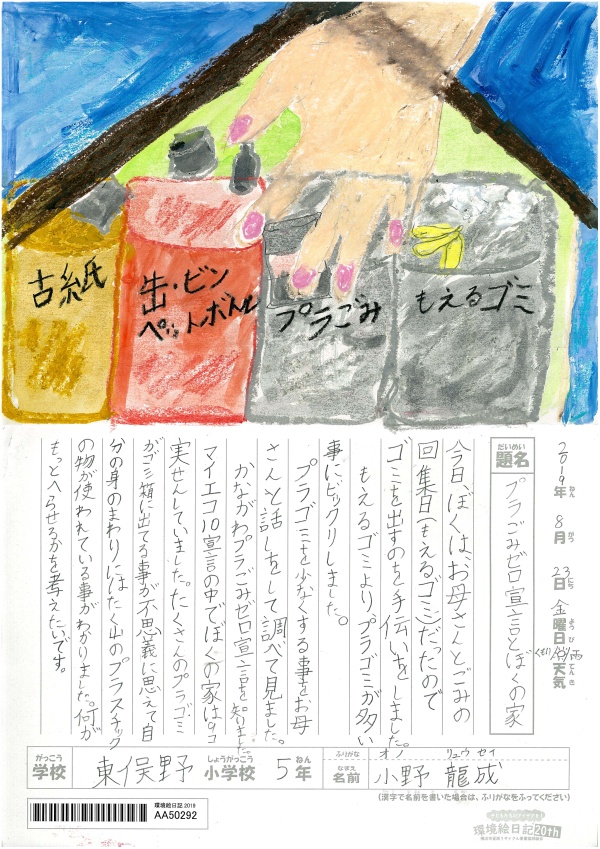 古紙
缶・ビン
ペットボトル
プラごみ
もえるゴミ
2019年ねん 8月がつ 23日にち 金曜日ようび くもり/雨 天気てんき
だいめい
題名
プラごみゼロ宣言とぼくの家
今日、ぼくは、お母さんとごみの
回集日(もえるゴミ)だったので
ゴミを出すのを手伝いをしました。
もえるゴミより、プラゴミが多い
事にビックリしました。
プラゴミを少なくする事をお母
さんと話しをして調べて見ました。
かながわプラごみゼロ宣言を知りました。
マイエコ10宣言の中でぼくの家は9コ
実せんしていました。たくさんのプラゴミ
がゴミ箱に出てる事が不思義に思えて自
分の身のまわりにはたく山のプラスチック
の物が使われている事がわかりました。何が
もっとへらせるかを考えたいです。
がっこう
学校
東俣野
しょうがっこう
小学校
5
ねん
年
ふりがな
オノ リュウセイ
なまえ
名前
小野 龍成
(漢字で名前を書いた場合は、ふりがなをふってください)
環境絵日記 2019
AA50292
環境絵日記20th